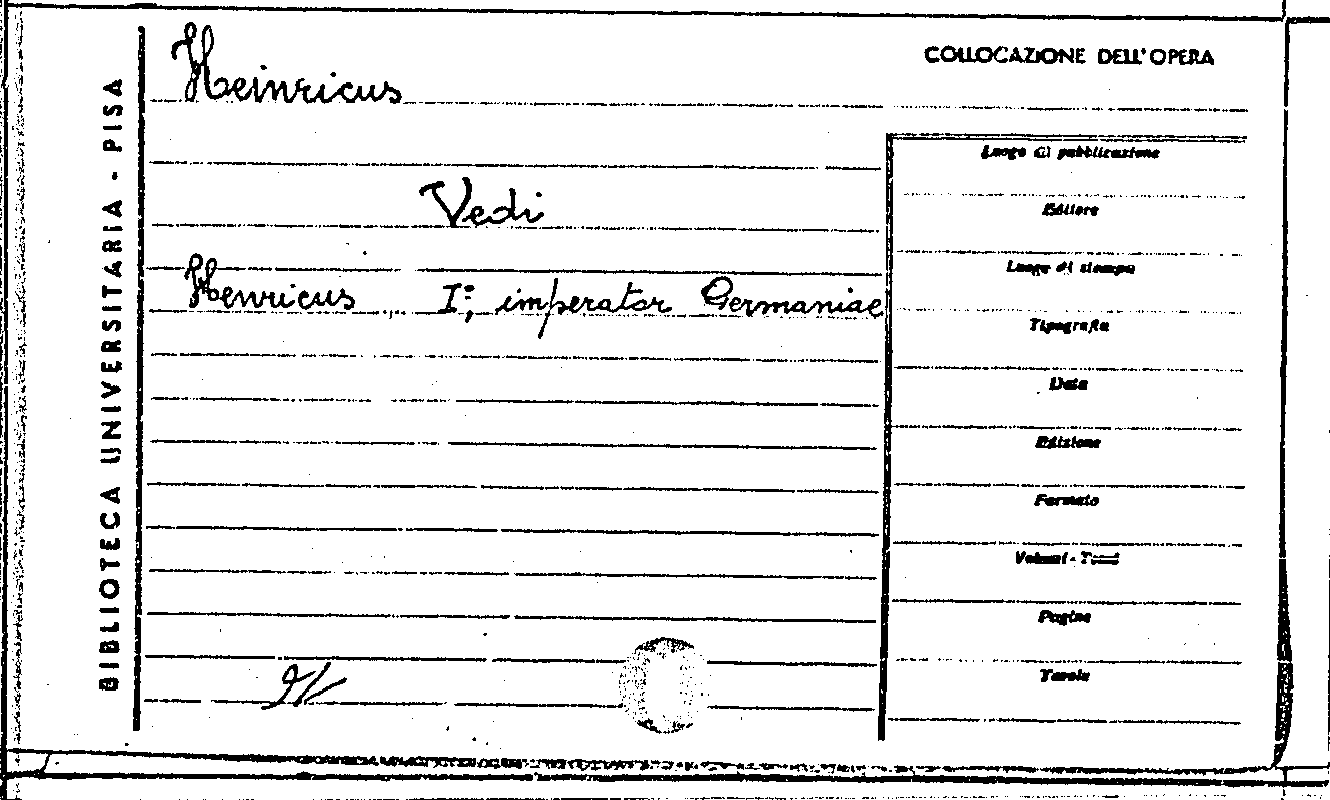 BIBLIOTECA UNIVERSITARIA - PISA
Heinricus
Vedi
Henricus I°, imperator Germaniae
COLLOCAZIONE DELL'OPERA
Luogo di pubblicazione
Editore
Luogo di stampa
Tipografia
Data
Edizione
Formato
Volumi - Tomi
Pagine
Tavole